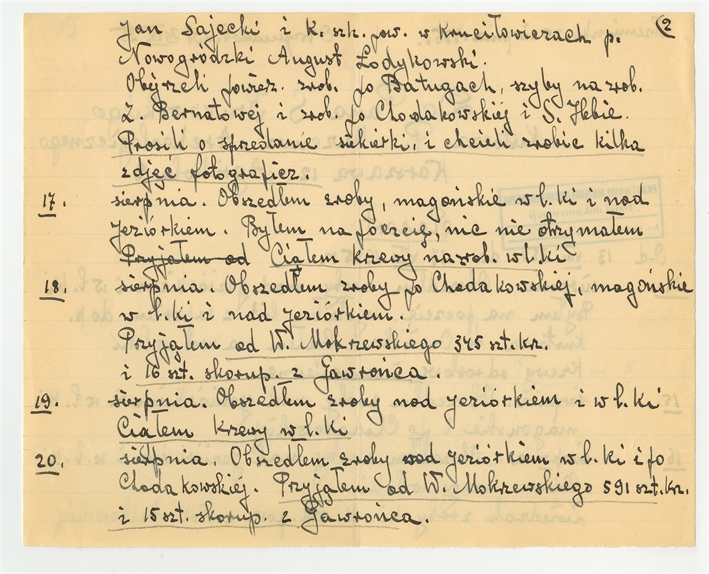 2
Jan Sajecki i K. szk. pow. w Kruciłowiczach p.
Nowogródzki August Łodykowski.
Obejrzeli powierz. zrob. po Bałtugach, szyby na zrob.
Z. Bernatowej i zrob. po Chodakowskiej i S. Hebie.
Prosili o sprzedanie siekierki, i chcieli zrobić kilka
zdjęć fotograficz.
17. sierpnia. Obszedłem zroby, magońskie w l. ki i nad
Jeziórkiem. Byłem na poczcie, nic nie otrzymałem
Przyjąłem od Ciąłem krzewy na zrob. w l. ki
18. sierpnia. Obszedłem zroby po Chodakowskiej, magońskie
w l. ki i nad Jeziórkiem.
Przyjąłem od W. Mokrzewskiego 345 szt. kr.
i 16 szt. skorup. z Gawrońca.
19. sierpnia. Obszedłem zroby nad Jeziórkiem i w l. ki
Ciąłem krzewy w l. ki
20. sierpnia. Obszedłem zroby nad Jeziórkiem w l. ki i po
Chodakowskiej. Przyjąłem od W. Mokrzewskiego 591 szt. kr.
i 15 szt. skorup. z Gawrońca.